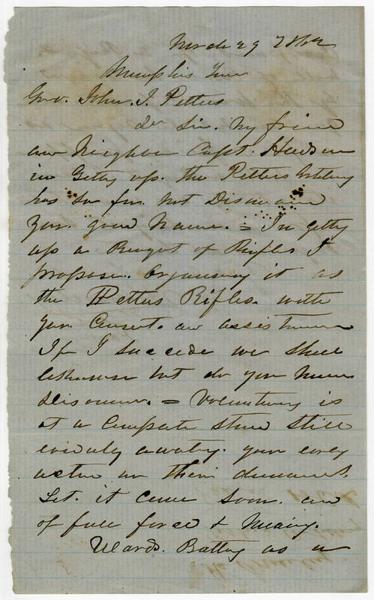 March 29 1862
Memphis Tenn
Gov. John. J. Pettus
Dr Sir. My friend
and Neighbor Capt. Hudson
in Getting up. the Pettus Artillery
has so far not Disgraced
Your good Name. = In getting
up a Regmt of Rifles I
propose. Organising it as
the Pettus Rifles. with
Your Consent. and assistance
If I succede we shall
likewise not do your Name
dishonor. = Volunteering is
at a Complete stand still
evidently awaiting. your early
action on them
Let. it come soon. and
of full force & Meaning.
Wards. Battery as a